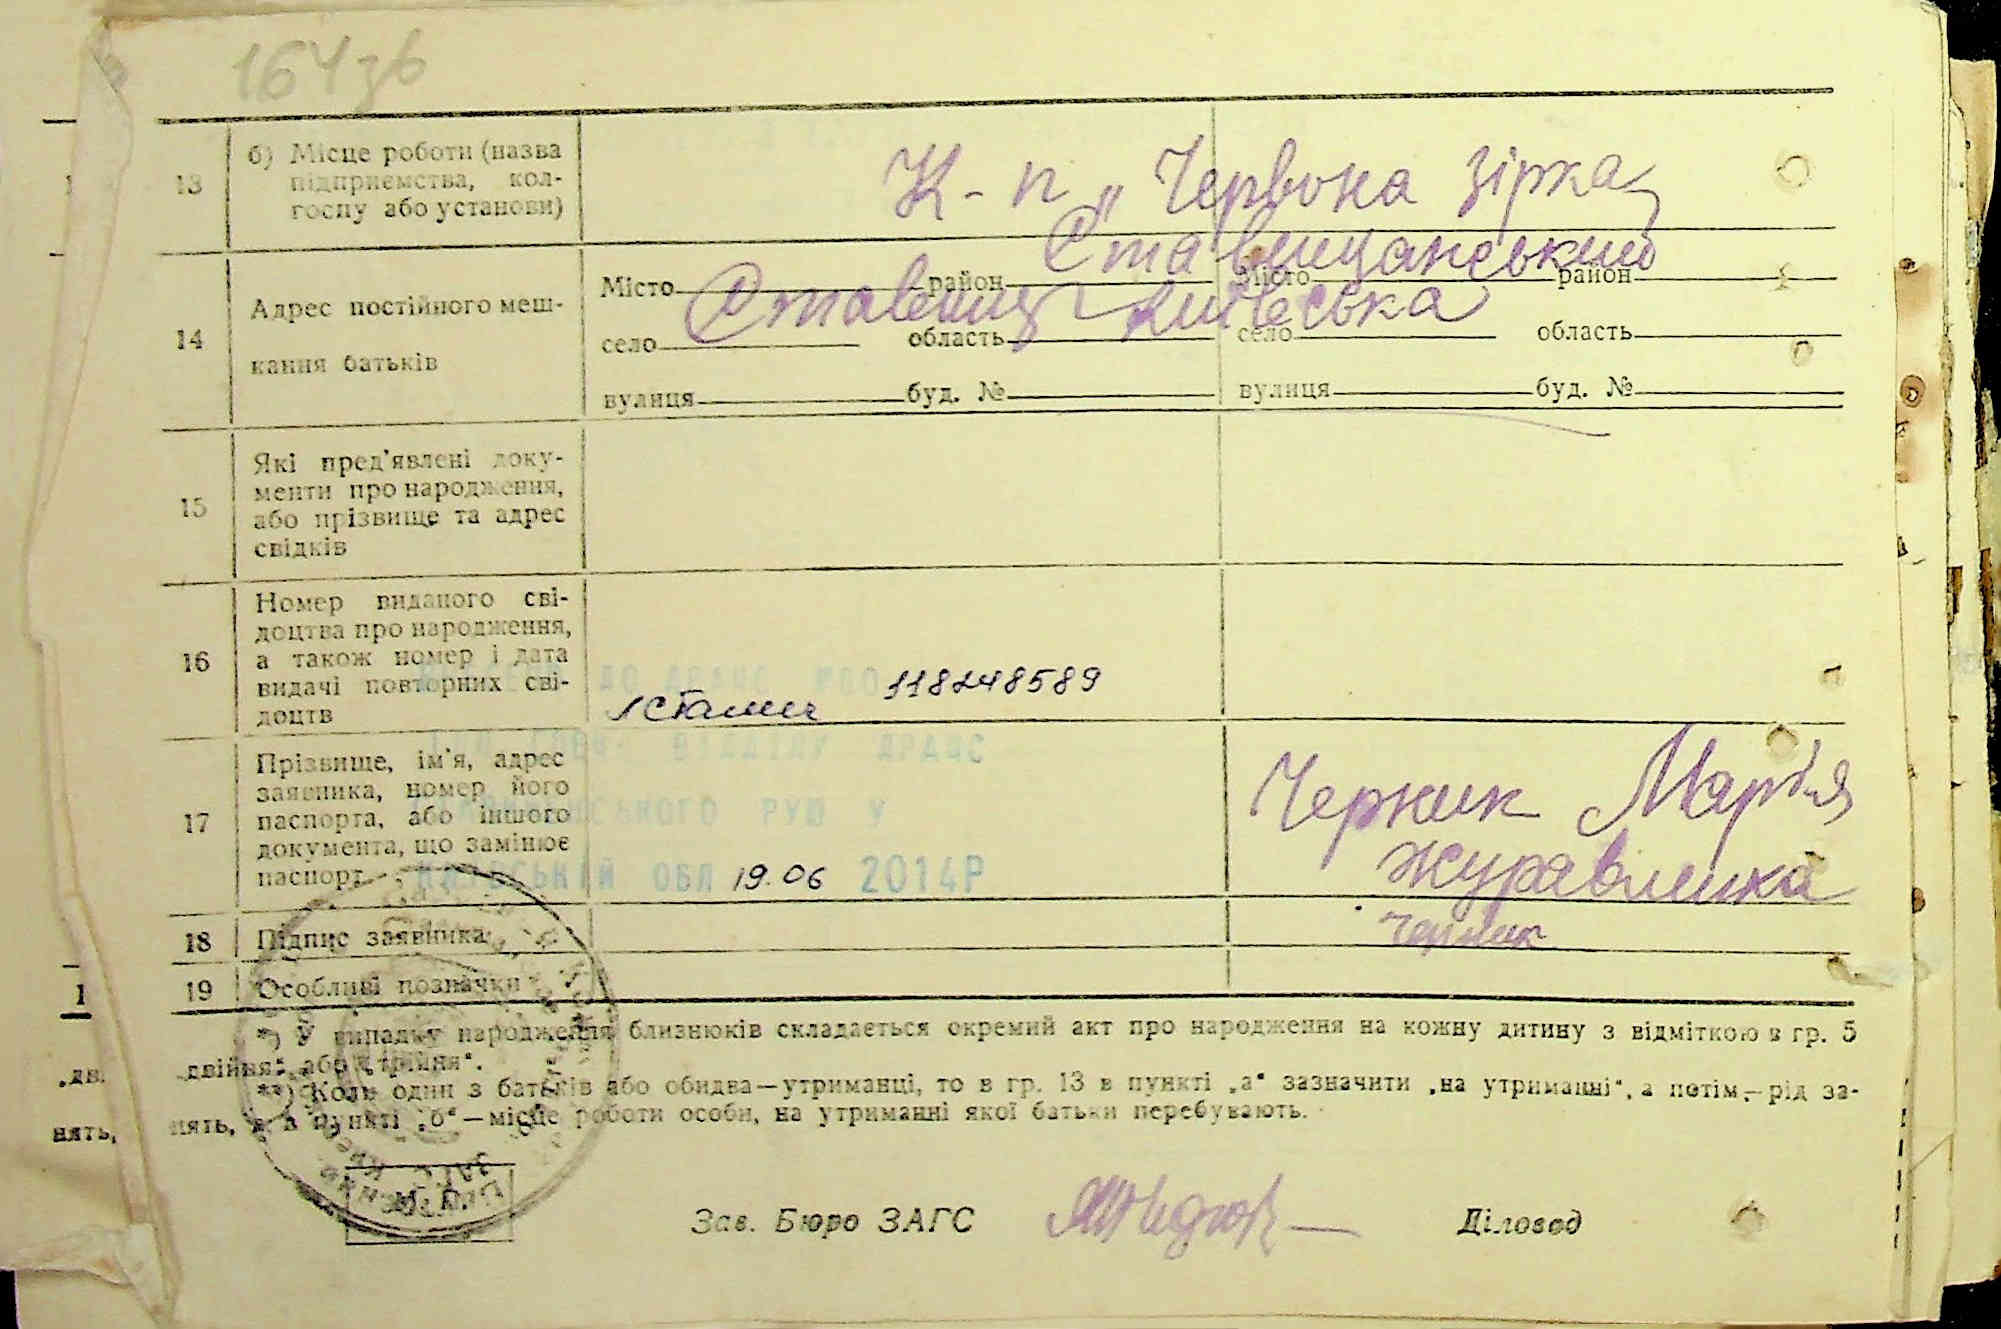 164зв
13
б) Місце роботи (назва
підприємства, кол-
госпу або установи)
К-п „Червона зірка
14
Адрес постійного меш-
кання батьків
Ставищанський
Місто район Місто район
Ставищ Київська
село область село область
вулиця буд. № вулиця буд. №
15
Які пред'явлені доку-
менти про народження,
або прізвище та адрес
свідків
16
Номер виданого сві-
доцтва про народження,
а також номер і дата
видачі повторних сві-
доцтв
ДО ДРАЦС
118248589
17
Прізвище, ім'я, адрес
заявника, номер його
паспорта, або іншого
документа, що замінює
паспорт
ВІДДІЛУ ДРАЦС
РУЮ У
ОБЛ 19.06 2014Р
Черник Марія
Журавлиха
18
Підпис заявника
Черник
19
Особливі позначки
1
*) У випадку народження близнюків складається окремий акт про народження на кожну дитину з відміткою в гр. 5
„дв. „двійня“ або „трійня“.
**) Коли один з батьків або обидва—утриманці, то в гр. 13 в пункті „а“ зазначити „на утриманні“, а потім—рід за-
нять, нять, а в пункті „б“—місце роботи особи, на утриманні якої батьки перебувають.
М. П.
Зав. Бюро ЗАГС Діловод